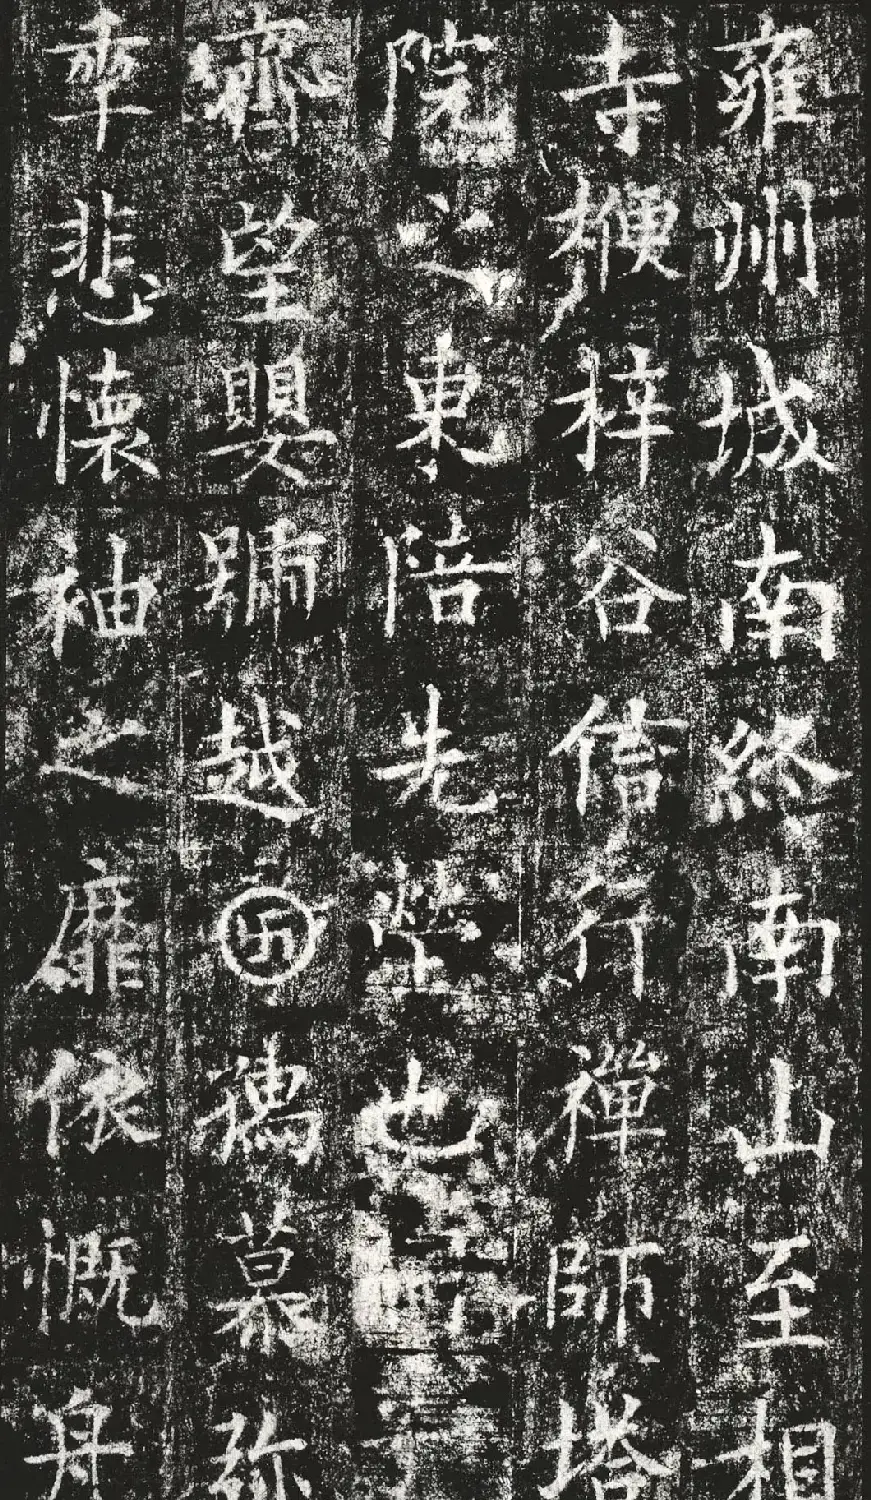 雍州城南終南山至相
寺楩梓谷信行禪師塔
院之東陪先塋也
齊望嬰號越孺慕弥
率悲懷袖之靡依慨舟